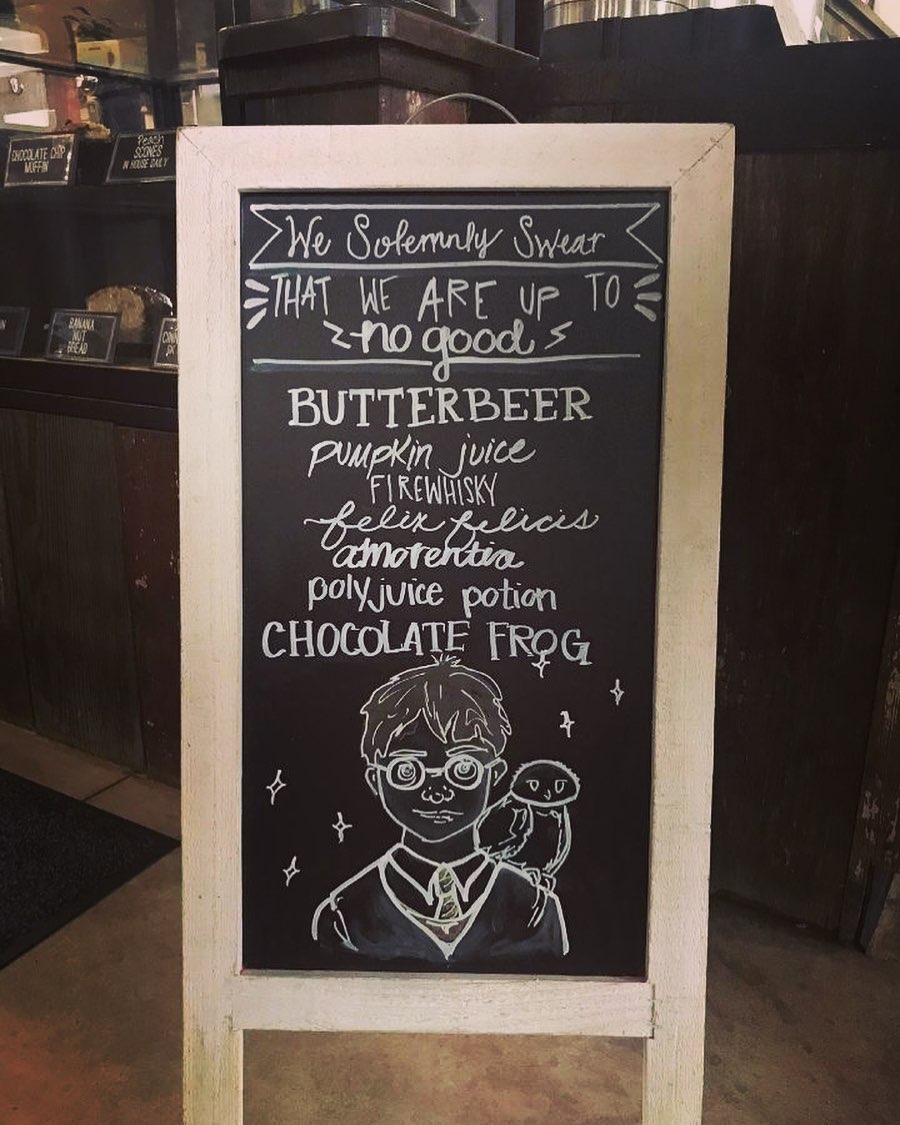 CHOCOLATE CHIP
MUFFIN
Peach
SCONES
IN HOUSE DAILY
BANANA
NUT
BREAD
We Solemnly Swear
THAT WE ARE UP TO
no good
BUTTERBEER
pumpkin juice
FIREWHISKY
felix felicis
amorentia
polyjuice potion
CHOCOLATE FROG